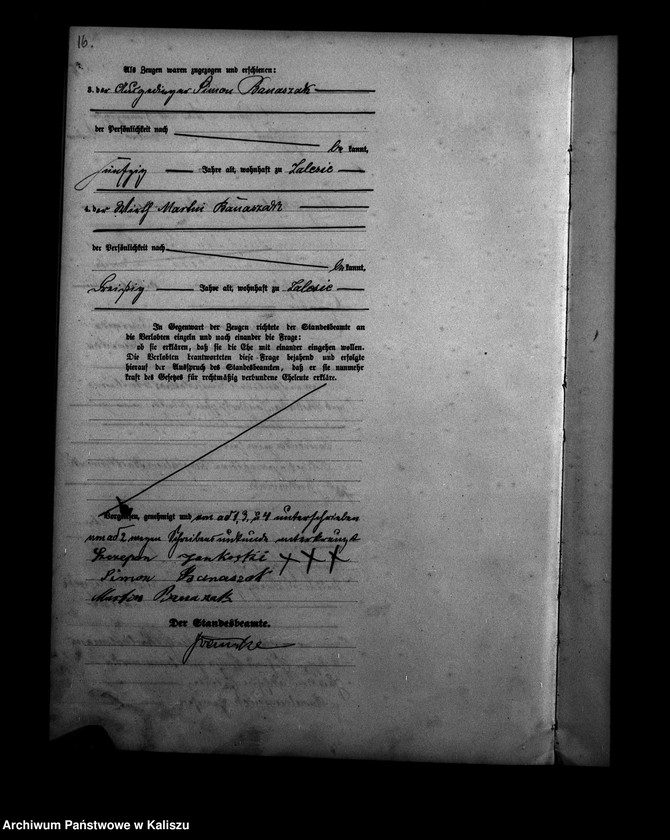 16.
Als Zeugen waren zugezogen und erschienen:
3. der Ausgedinger Simon Banaszak
der Persönlichkeit nach
be kannt,
fünfzig Jahre alt, wohnhaft zu Zalesie
4. der Wirth Martin Banaszak
der Persönlichkeit nach
be kannt,
dreißig Jahre alt, wohnhaft zu Zalesie
In Gegenwart der Zeugen richtete der Standesbeamte an
die Verlobten einzeln und nach einander die Frage:
ob sie erklären, daß sie die Ehe mit einander eingehen wollen.
Die Verlobten beantworteten diese Frage bejahend und erfolgte
hierauf der Ausspruch des Standesbeamten, daß er sie nunmehr
kraft des Gesetzes für rechtmäßig verbundene Eheleute erkläre.
Vorgelesen, genehmigt und von ad 1, 3, 4 unterschrieben
von ad 2 wegen Schreibensunkunde unterkreuzt
Szczepan Jankoski +++
Simon Banaszak
Marton Banaszak
Der Standesbeamte.
Archiwum Państwowe w Kaliszu